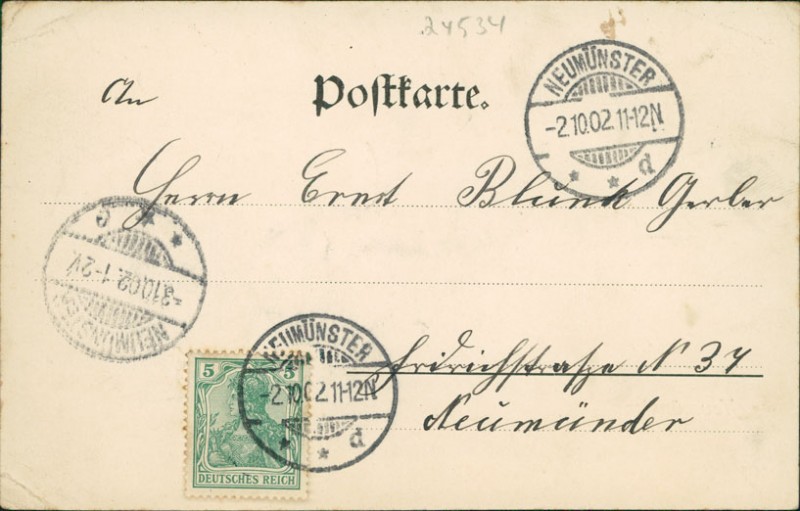 24534
An
Postkarte.
NEUMÜNSTER
-2.10.02.11-12N.
* * d
Herrn Ernst Blunk Gerber
NEUMÜNSTER
-3.10.02.1-2V.
* * c
NEUMÜNSTER
-2.10.02.11-12N.
* * d
Fridrichstraße N 37
Neumünder
5 5
DEUTSCHES REICH